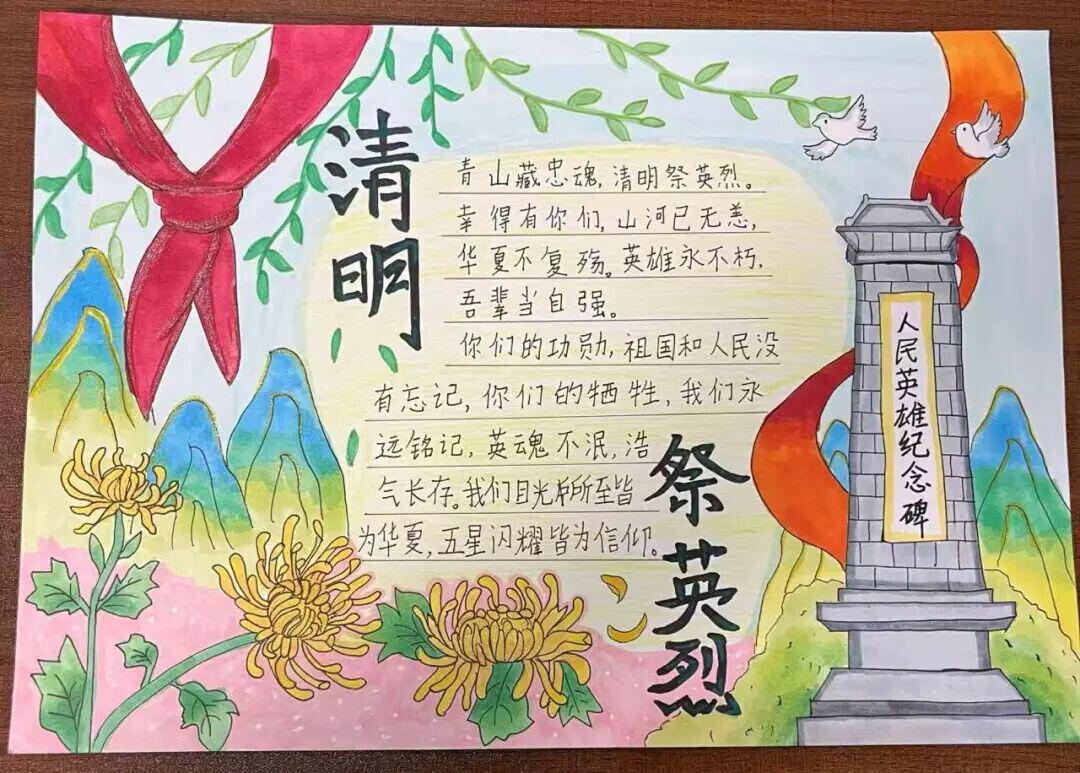 清明
祭英烈
青山藏忠魂,清明祭英烈。
幸得有你们,山河已无恙,
华夏不复殇。英雄永不朽,
吾辈当自强。
你们的功勋,祖国和人民没
有忘记,你们的牺牲,我们永
远铭记,英魂不泯,浩
气长存。我们目光所至皆
为华夏,五星闪耀皆为信仰。
人民英雄纪念碑